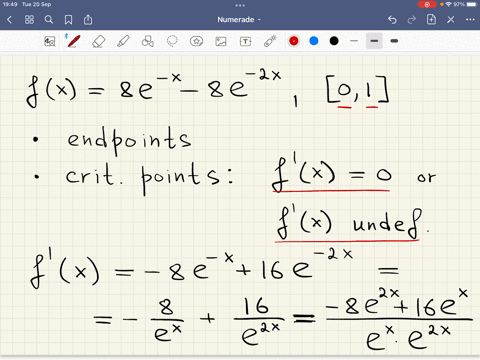 19:49 Tue 20 Sep
97%
Numerade
f(x) = 8e^{-x} - 8e^{-2x}, [0,1]
• endpoints
• crit. points: f'(x) = 0 or
f'(x) undef.
f'(x) = -8e^{-x} + 16e^{-2x} =
= - \frac{8}{e^x} + \frac{16}{e^{2x}} = \frac{-8e^{2x} + 16e^x}{e^x \cdot e^{2x}}